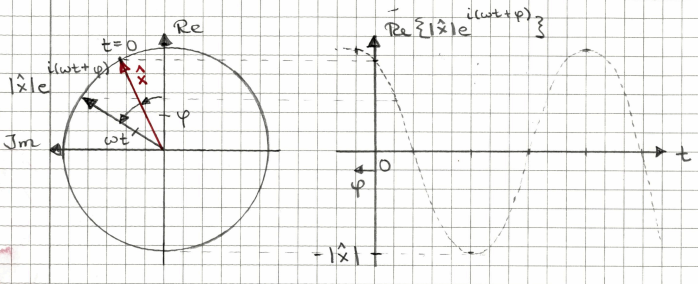 Re
t=0
x̂
|x̂|e^{i(ωt+φ)}
φ
ωt
Jm
Re{|x̂|e^{i(ωt+φ)}}
t
0
φ
-|x̂|